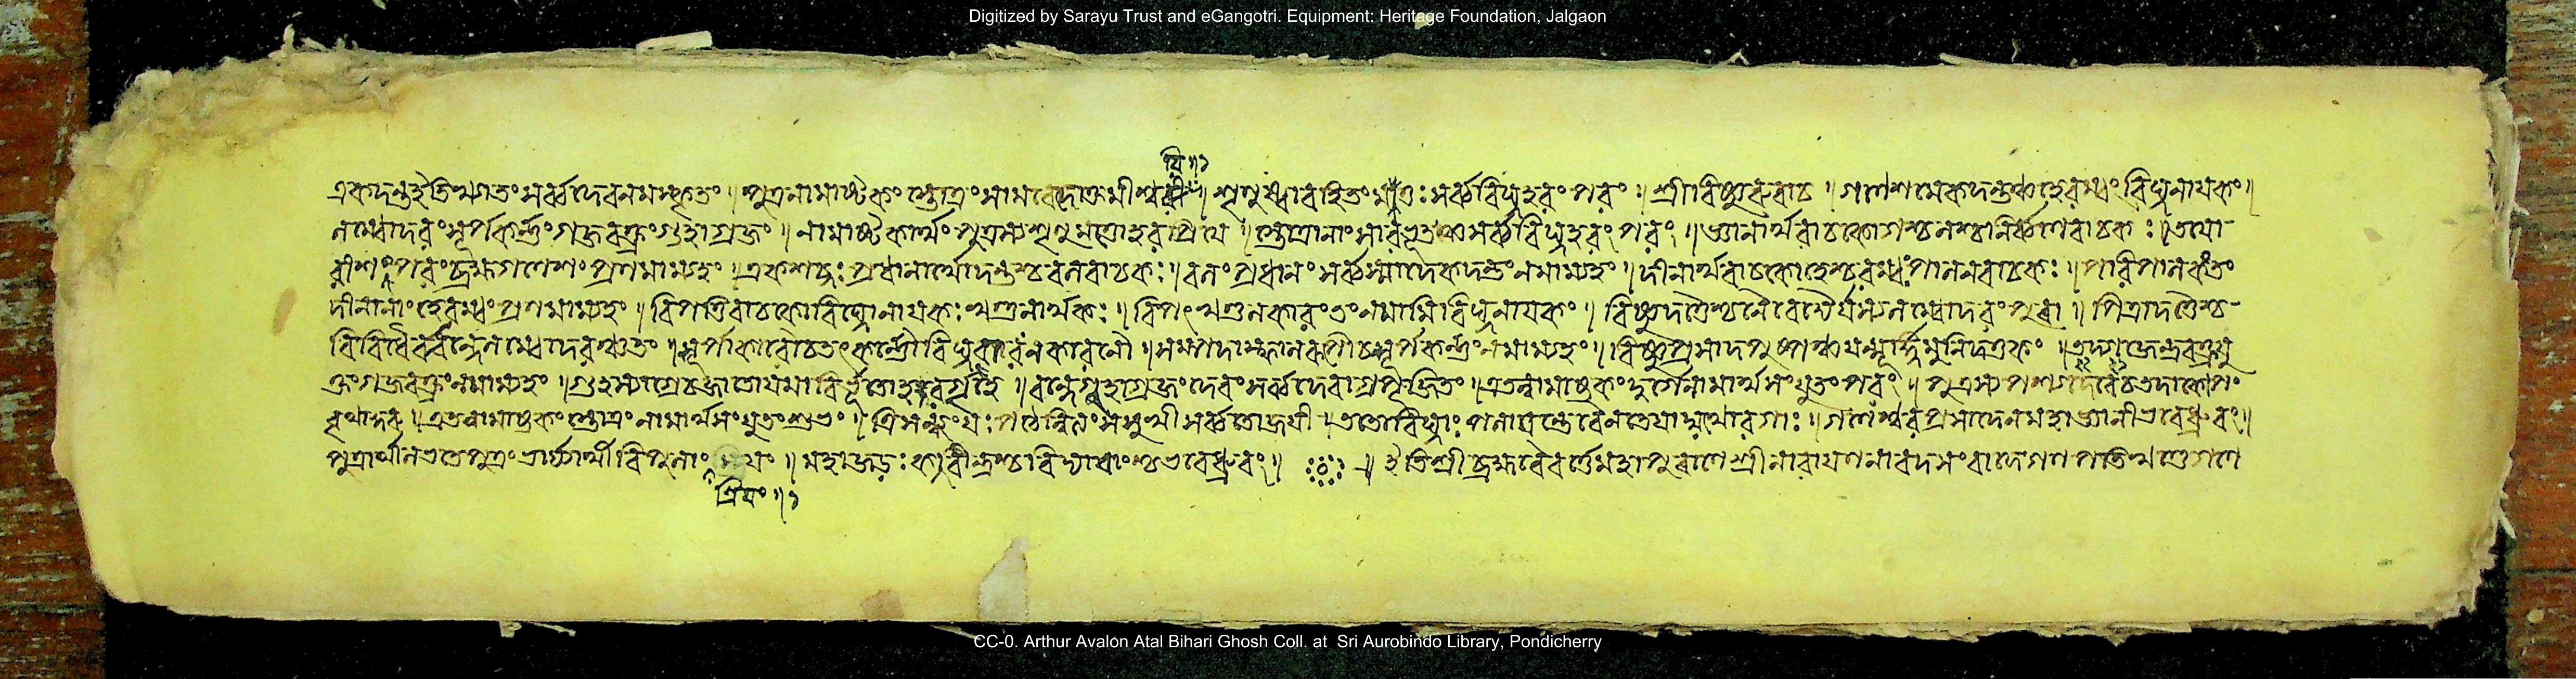 Digitized by Sarayu Trust and eGangotri. Equipment: Heritage Foundation, Jalgaon
একদন্ত ইতি খ্যাতং সর্ব্বদেবনমস্কৃতং । পুত্রনামাষ্টকং স্তোত্রং সামবেদোক্তমীশ্বরি । শৃণুষ্বাবহিতং মাতঃ সর্ব্ববিঘ্নহরং পরং । শ্রীবিষ্ণুরুবাচ । গণেশমেকদন্তঞ্চ হেরম্বং বিঘ্ননায়কং ।
লম্বোদরং সূর্পকর্ণং গজবক্ত্রং গুহাগ্রজং । নামাষ্টকার্থং পুত্রস্য শৃণু মাতো হরপ্রিয়ে । স্তোত্রাণাং সারভূতঞ্চ সর্ব্ববিঘ্নহরং পরং । জ্ঞানার্থবাচকো গশ্চ ণশ্চ নির্ব্বাণবাচকঃ । তয়ো-
রীশং পরং ব্রহ্ম গণেশং প্রণমাম্যহং । একশব্দঃ প্রধানার্থো দন্তশ্চ বলবাচকঃ । বলং প্রধানং সর্ব্বস্মাদেকদন্তং নমাম্যহং । দীনার্থবাচকো হেশ্চ রম্বঃ পালনবাচকঃ । পরিপালকং তং
দীনানাং হেরম্বং প্রণমাম্যহং । বিপত্তিবাচকো বিঘ্নো নায়কঃ খণ্ডনার্থকঃ । বিপৎখণ্ডনকারং তং নমামি বিঘ্ননায়কং । বিষ্ণুদত্তৈশ্চ নৈবেদ্যৈর্যস্য লম্বোদরং পুরা । পিত্রা দত্তৈশ্চ
বিবিধৈর্ব্বন্দে লম্বোদরঞ্চ তং । সূর্পাকারৌ চ যৎকর্ণৌ বিঘ্নবারণকারণৌ । সম্পদাস্ফালকপৌ চ সূর্পকর্ণং নমাম্যহং । বিষ্ণুপ্রসাদপুষ্পঞ্চ যন্মূর্দ্ধ্নি মুনিদত্তকং । তদ্গজেন্দ্রবক্ত্রযু
ক্তং গজবক্ত্রং নমাম্যহং । গুহস্যাগ্রে চ জাতোয়মাবির্ভূতো হরগৃহে । বন্দে গুহাগ্রজং দেবং সর্ব্বদেবাগ্রপূজিতং । এতন্নামাষ্টকং দুর্গে নামার্থসংযুতং পরং । পুত্রস্য পশ্য বেদে চ তদা কোপং
বৃথা কুরু । এতন্নামাষ্টকং স্তোত্রং নামার্থসংযুতং শুভং । ত্রিসন্ধ্যং যঃ পঠেন্নিত্যং স সুখী সর্ব্বতোজয়ী । ততো বিঘ্নাঃ পলায়ন্তে বৈনতেয়াদ্যথোরগাঃ । গণেশ্বরপ্রসাদেন মহাজ্ঞানী ভবেদ্ধ্রুবং ।
পুত্রার্থী লভতে পুত্রং ভার্য্যার্থী বিপুলাং । মহাজড়ঃ কবীন্দ্রশ্চ বিদ্যাবাংশ্চ ভবেদ্ধ্রুবং । ইতি শ্রীব্রহ্মবৈবর্ত্তে মহাপুরাণে শ্রীনারায়ণনারদসংবাদে গণপতিখণ্ডে গণে
স্ত্রিয়ং ॥
CC-0. Arthur Avalon Atal Bihari Ghosh Coll. at Sri Aurobindo Library, Pondicherry